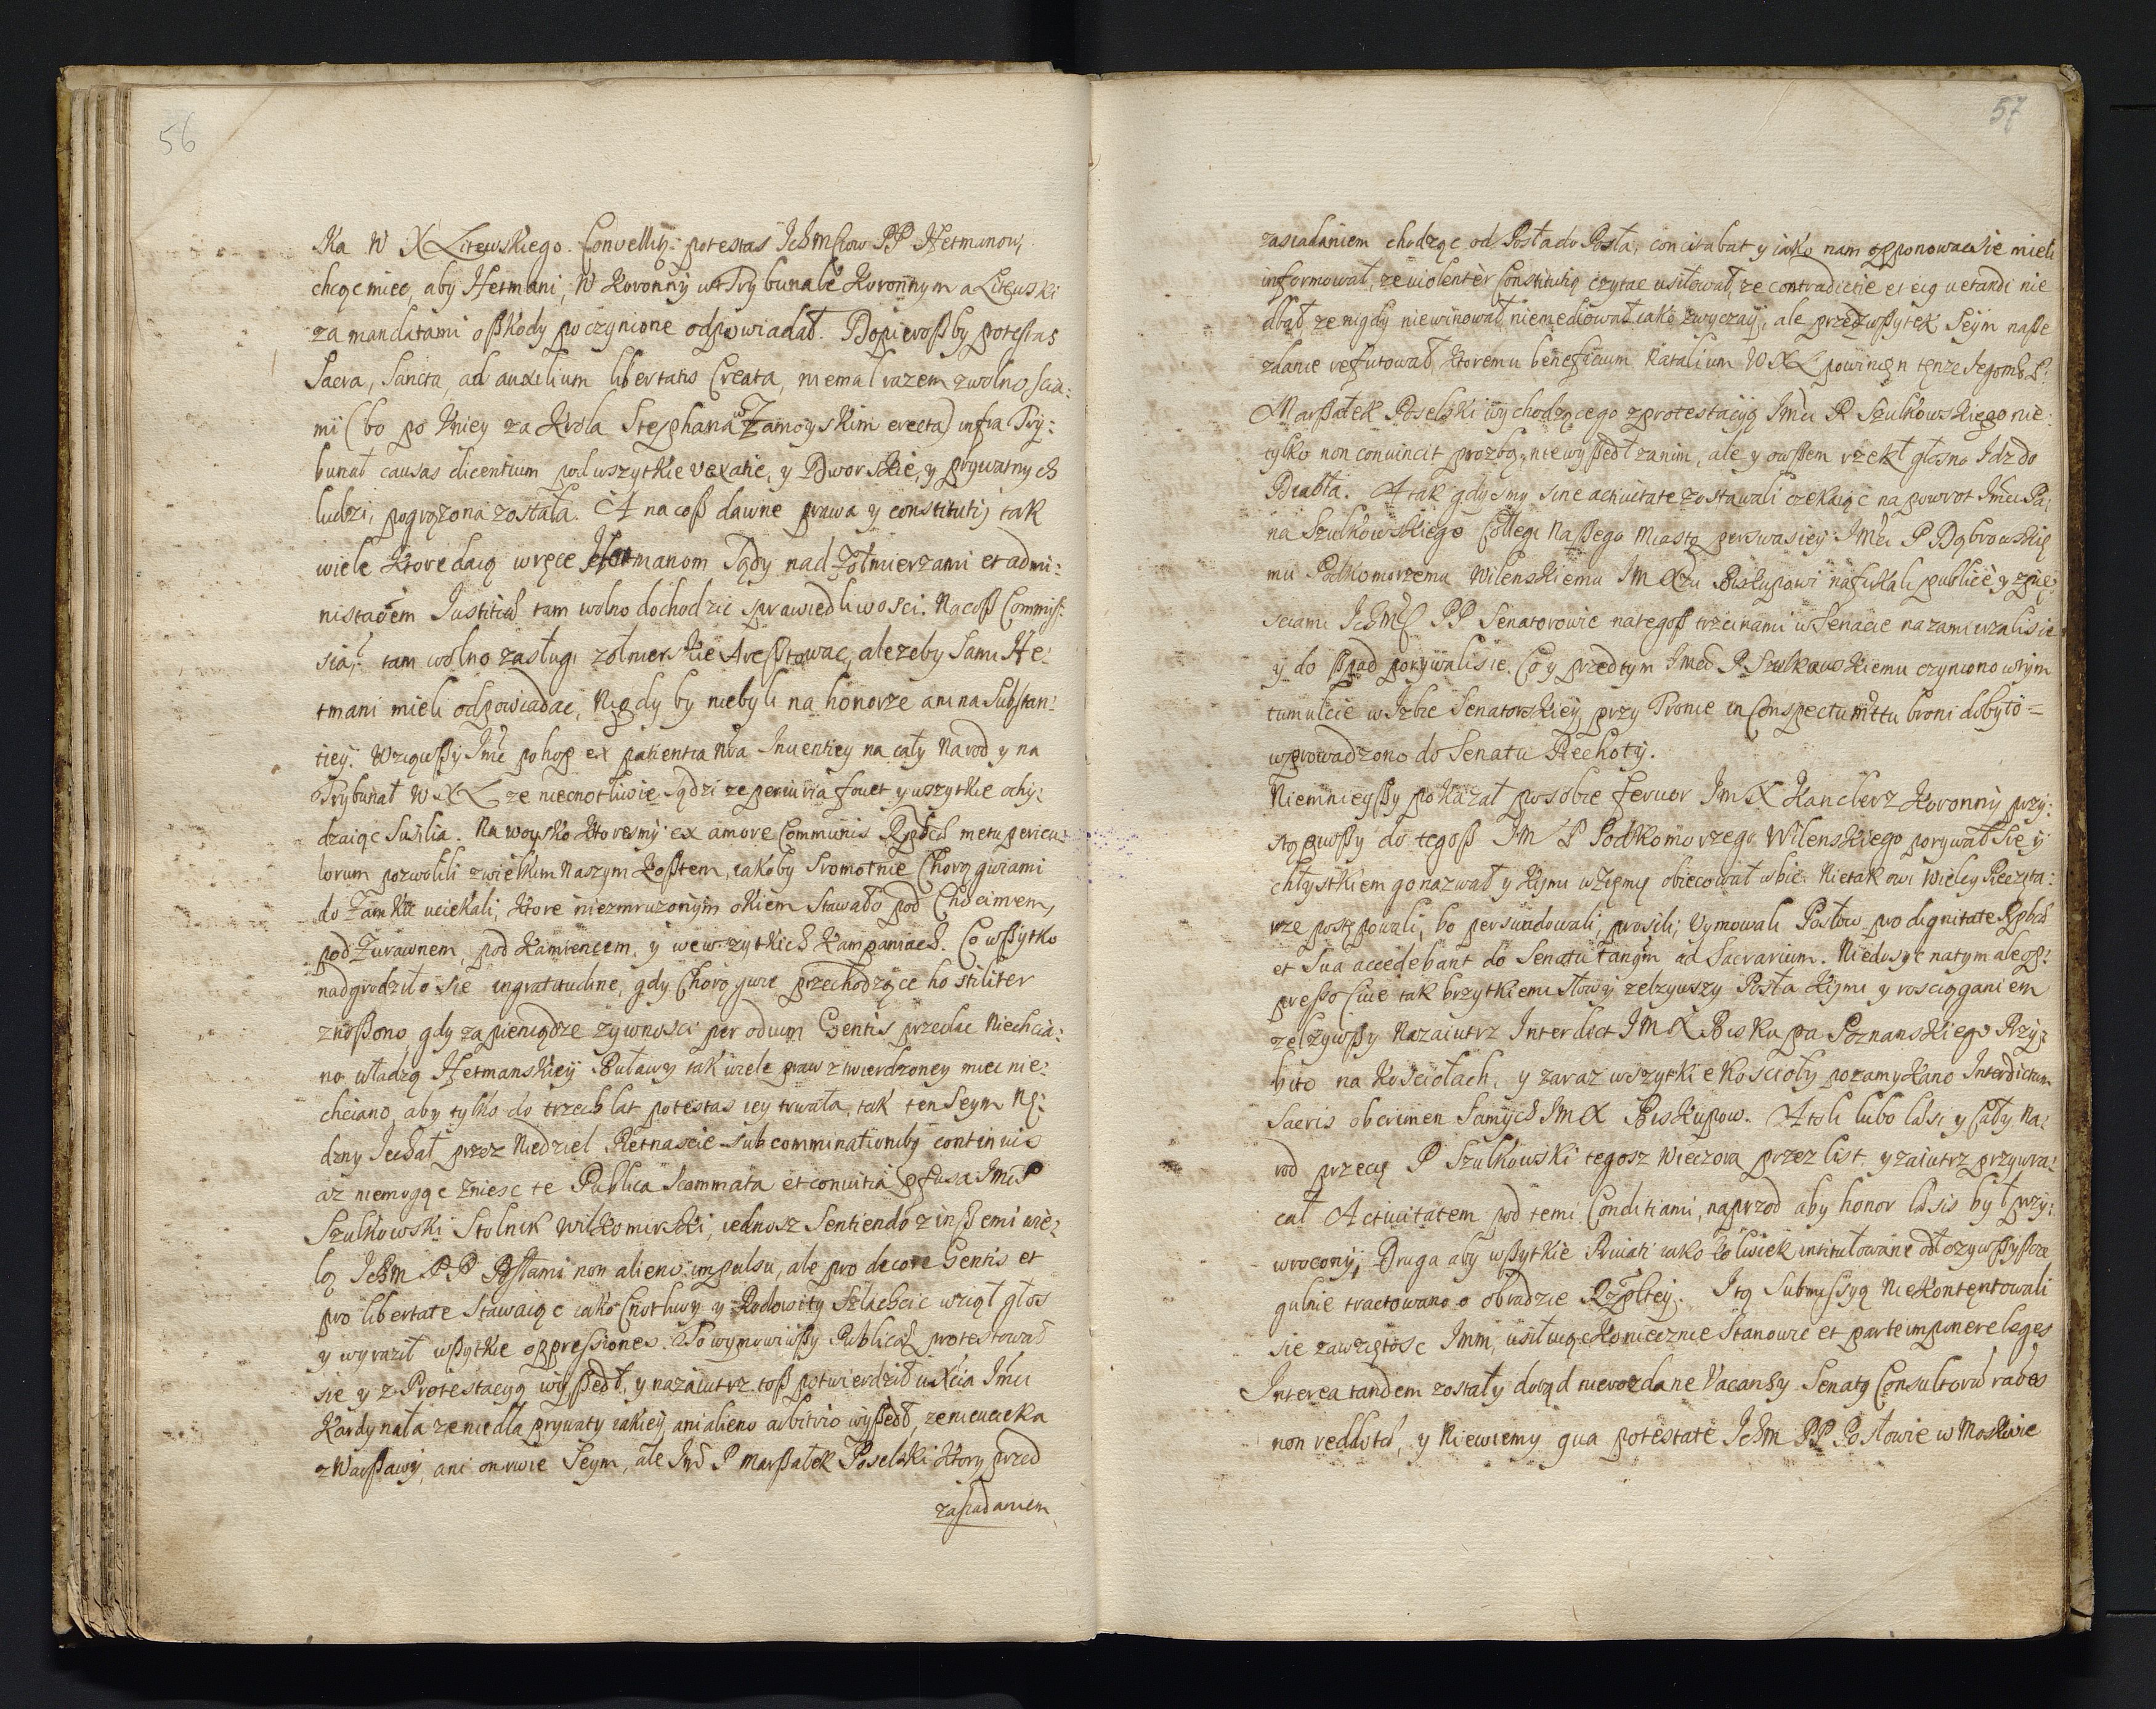 56
ka W X Litewskiego. Convellitr potestas Ichmściow PP Hetmanow,
chcąc miec, aby Hetmani, W Koronny w Trybunale Koronnym a Litewski
za mandatami o szkody poczynione odpowiadał. Dopieroszby potestas
Sacra, Sancta, ad auxilium libertatis Creata, niemal razem z wolnoscia:
mi (bo po Uniey za Krola Stephana z Zamoyskim erecta) infra Try:
bunał causas dicentium pod wszytkie vexatie, y Dworskie, y prywatnych
ludzi, pogrążona została. A na cosz dawne prawa y constitutij tak
wiele ktore daią w ręce Hetmanom Sądy nad Żołnierzami et admi:
nistraõem Justitiæ tam wolno dochodzic sprawiedliwosci. Na cosz Commis:
sia, tam wolno zasługi zołnierskie Aresztowac, ale zeby Sami He:
tmani mieli odpowiadac, Nigdy by niebyli na honorze ani na Substan:
tiey. Wziąwszy Jmć pohop ex patientia nra Inventiey na cały Narod y na
Trybunał WXL ze niecnotliwie Sądzi ze periuria fovet y wszytkie ochy:
dzaiąc Subsilia. Na woysko ktoresmy ex amore Communis Rzptey metu pericu:
lorum pozwolili z wielkim Naszym kosztem, iakoby Sromotnie Chorągwiami
do Zamku uciekali, ktore niezmruzonym okiem Stawało pod Chocimem,
pod Zurawnem, pod Kamiencem, y we wszytkich Kampaniach. Co wszytko
nadgrodziło sie ingratitudine, gdy Chorągwie przechodzące hostiliter
znoszono, gdy za pieniądze zywnosci per odium Gentis przedac Niechcia:
no, władzą Hetmanskiey Buławy tak wiele praw ztwierdzoney miec nie:
chciano, aby tylko do trzech lat potestas iey trwała, tak ten Seym Nę:
dzny Jechał przez Niedziel Pietnascie sub comminationibg continuis
az niemogąc zniesc te Publica Scommata et convitia profusa Jmć P
Szulkowski Stolnik Wilkomirski, iednosz Sentiendo z inszemi wie:
lą Ichm PP Posłami non alieno impulsu, ale pro decore Gentis et
pro libertate Stawaiąc iako Cnotliwy y Rodowity Szlachcic wziął głos
y wyraził wszytkie oppressiones. Co wymowiwszy Publicæ protestował
sie y z Protestacyą wyszedł, y nazaiutrz tosz potwierdził u Xcia Jmci
Kardynała ze nie dla prywaty iakiey ani alieno arbitrio wyszedł, ze nieucieka
z Warszawy, ani on rwie Seym, ale Jmć P Marszałek Poselski ktory przed
zasiadaniem
57
zasiadaniem chodząc od Posła do Posła, concitabat y iako nam opponowac sie mieli
informował, ze violenter Constitutią czytac usiłował, ze contradictie et eig vetandi nie
dbał, ze nigdy niewinował, niemediował iako zwyczay, ale przez wszytek Seym nasze
zdanie refutował, ktoremu beneficium Natalium WXL powinęn tęnze Jegomć P.
Marszałek Poselski wychodzącego z protestacyą Jmci P Szulkowskiego nie:
tylko non convincit prozbą, nie wyszedł za nim, ale y owszem rzekł głosno Idz do
Diabła. A tak gdysmy sine activitate zostawali czekaiąc na powrot Jmci Pa:
na Szulkowskiego Collegi Naszego miasto perswasiey Jmci P Dąbrowskie:
mu Podkomorzemu Wilenskiemu Jm Xdu Biskupowi nafukali publicè y z pię:
sciami Ichmć PP Senatorowie na tegosz trzcinami w Senacie na zamierzali sie
y do szpad porywali sie. Co y przedtym Jmci P Szulkowskiemu czyniono w tym
tumulcie w Izbie Senatorskiey przy Tronie in Conspectu mttu broni dobyto =
wprowadzono do Senatu Piechoty.
Niemnieyszy pokazał po sobie fervor Jm X Kanclerz Koronny przy:
stąpiwszy do tegosz Jm P Podkomorzego Wilenskiego porywał sie y
chłystkiem go nazwał y Kijmi w Ziemię obiecował wbic. Nie tak owi Wielcy Pieczęta:
rze postępowali, bo persvadowali, prosili, Uymowali Posłow pro dignitate Rpbcæ
et Sua accedebant do Senatu tanqm ad Sacrarium. Niedosyc na tym ale op:
presso Cive tak brzytkiemi słowy zelzywszy Posła Kijmi y rosciąganiem
zelzywszy Nazaiutrz Interdict Jm X Biskupa Poznanskiego Przy:
bito na Kosciołach, y zaraz wszytkie Koscioły pozamykano Interdictum
Sacris ob crimen Samych Jm X Biskupow. A toli lubo læsi y cały Na:
rod przecię P Szulkowski tegosz Wieczora przez list y zaiutrz przywra:
cał Activitatem pod temi Conditiami, naprzod aby honor læsis był przy:
wrocony, Druga aby wszytkie Privati iako kolwiek intitulowane odłozywszy szcze
gulnie tractowano o obradzie Rzpltey. Jtą Submissyą Niekontentowali
sie zawziętosc Jmm, usiłuiąc koniecznie Stanowic et parte imponere leges
Interea tandem zostały dotąd nierozdane Vacansy. Senatg Consultorũ rados
non reddita, y Niewiemy qua potestate Ichm PP Posłowie w Moskwie